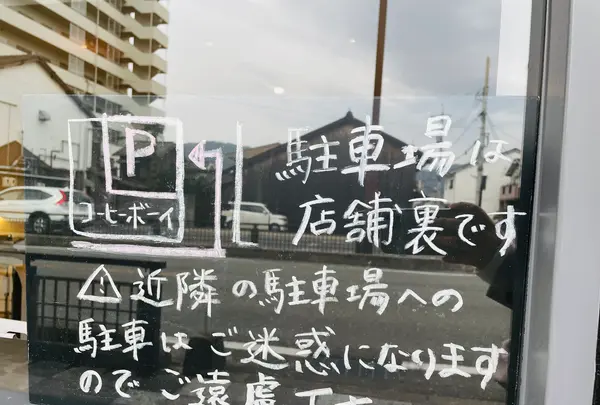 P
コーヒーボーイ
駐車場は
店舗裏です
⚠近隣の駐車場への
駐車はご迷惑になります
のでご遠慮